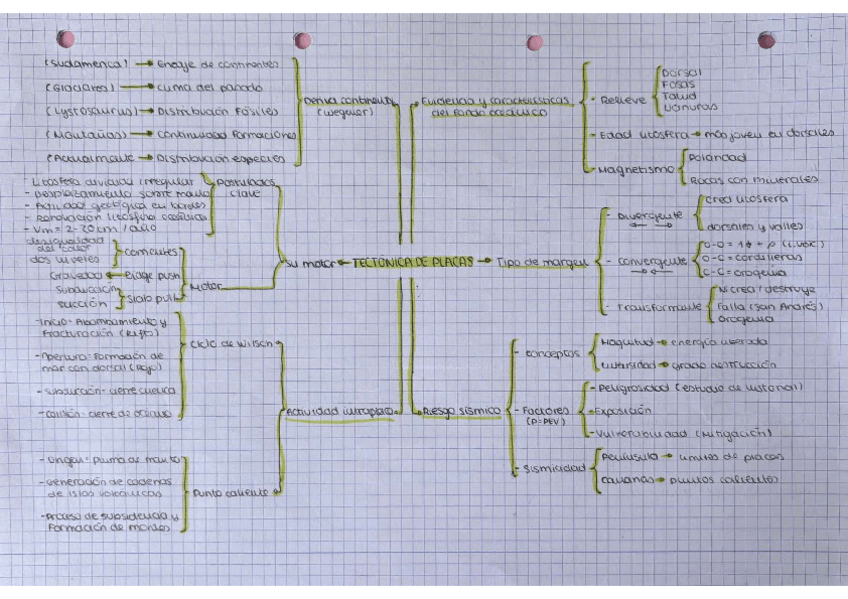 (Sudamérica) → Encaje de continentes
(Glaciares) → clima del pasado
(Lystosaurus) → Distribución fósiles
(Montañas) → Continuidad formaciones
(Actualmente → Distribución especies
Deriva continental
(Wegener)
- Litosfera dividida irregular
- Desplazamiento sobre manto
- Actividad geológica en bordes
- Renovación litosfera oceánica
- Vm = 2-20cm / año
Postulados
clave
desigualdad
del calor
dos niveles
corrientes
Gravedad ← Ridge push
Subducción
succión
Slab pull
Motor
Su motor ← TECTÓNICA DE PLACAS → Tipo de margen
Evidencias y características
del fondo oceánico
- Relieve
Dorsal
Fosas
Talud
Llanuras
- Edad litosfera → más joven en dorsales
- Magnetismo
Polaridad
Rocas con minerales
- Divergente
Crea litosfera
dorsales y valles
- Convergente
O-C = cordilleras
C-C = orogenia
- Transformante
Ni crea / destruye
Falla (San Andrés)
Orogenia
- Inicio: Abombamiento y
Fracturación (Rift)
- Apertura: Formación de
mar con dorsal (Rojo)
- Subducción: cierre cuenca
- Colisión: cierre de océano
Ciclo de Wilson
- Origen: Pluma de manto
- Generación de cadenas
de islas volcánicas
- Proceso de subsidencia y
Formación de montes
Punto caliente
Actividad intraplaca
Riesgo sísmico
- Conceptos
Magnitud → energía liberada
Intensidad → grado destrucción
- Factores
(R=PEV)
- Peligrosidad (estudio de historial)
- Exposición
- Vulnerabilidad (Mitigación)
- Sismicidad
Península → límites de placas
Canarias → puntos calientes